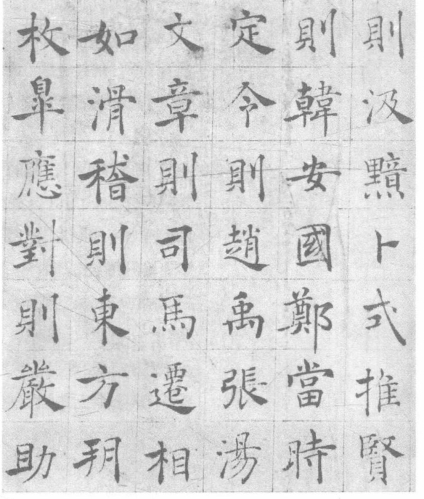 則汲黯卜式推賢
則韓安國鄭當時
定令則趙禹張湯
文章則司馬遷相
如滑稽則東方朔
枚皐應對則嚴助